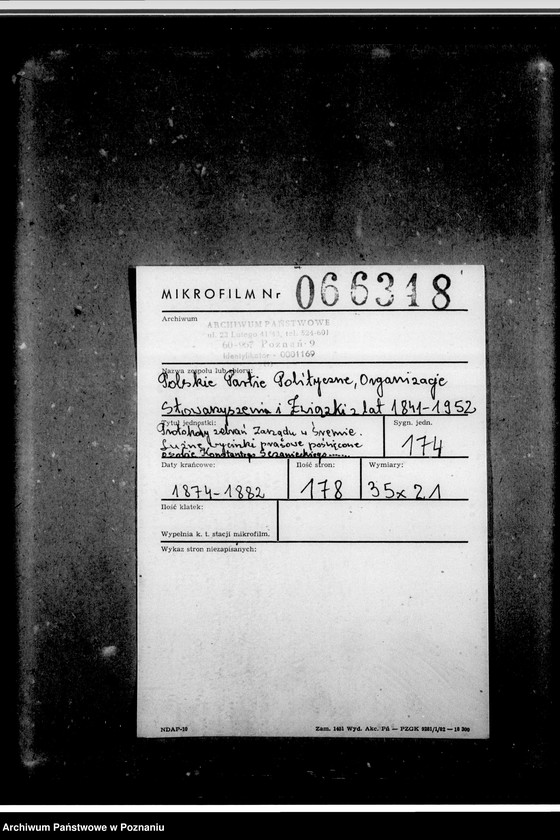 MIKROFILM Nr 066318
Archiwum
ARCHIWUM PAŃSTWOWE
ul. 23 Lutego 41/43, tel. 524-601
60-967 Poznań 9
Identyfikator - 0001169
Nazwa zespołu lub zbioru:
Polskie Partie Polityczne, Organizacje
Stowarzyszenia i Związki z lat 1841-1952
Tytuł jednostki:
Sygn. jedn.
Protokoły zebrań Zarządu w Śremie.
Luźne wycinki prasowe poświęcone
osobie Konstantego
174
Daty krańcowe:
Ilość stron:
Wymiary:
1874-1882
178
35x21
Ilość klatek:
Wypełnia k. t. stacji mikrofilm.
Wykaz stron niezapisanych:
NDAP-10
Zam. 1481 Wyd. Akc. Pń — PZGK
Archiwum Państwowe w Poznaniu